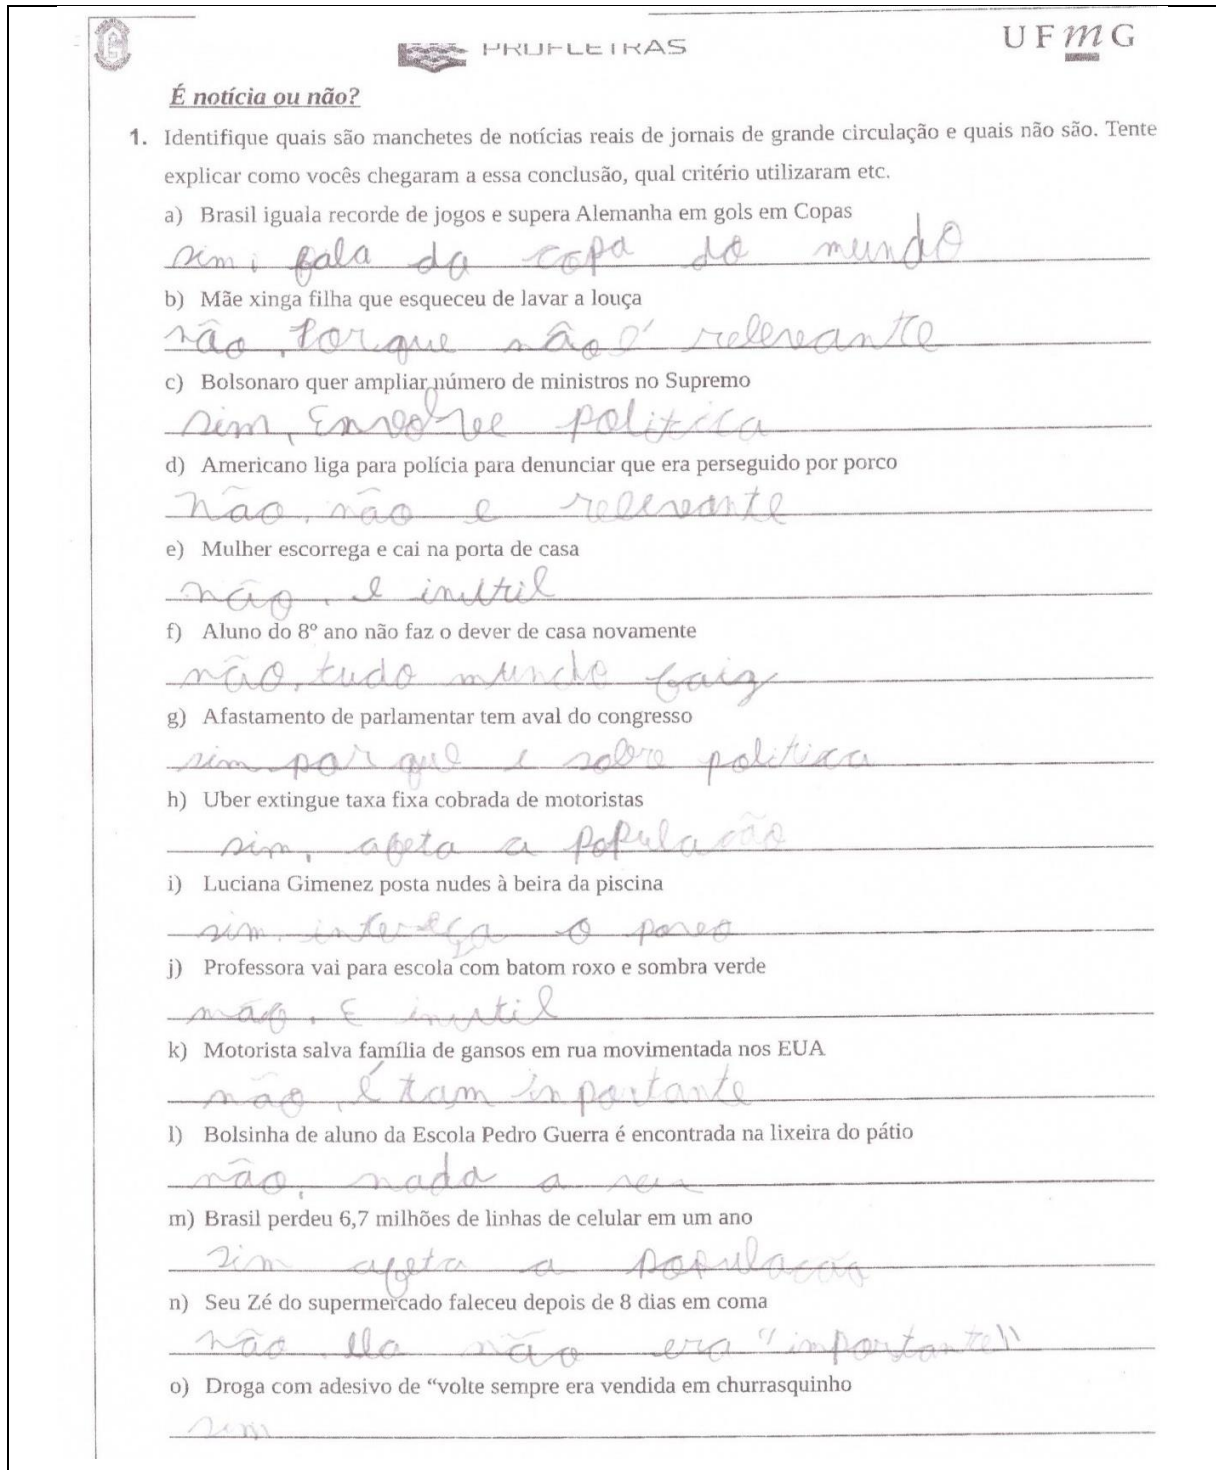 PROFLETRAS
UFMG
É notícia ou não?
1. Identifique quais são manchetes de notícias reais de jornais de grande circulação e quais não são. Tente
explicar como vocês chegaram a essa conclusão, qual critério utilizaram etc.
a) Brasil iguala recorde de jogos e supera Alemanha em gols em Copas
sim, fala da copa do mundo
b) Mãe xinga filha que esqueceu de lavar a louça
não, Porque não é relevante
c) Bolsonaro quer ampliar número de ministros no Supremo
sim, Envolve politica
d) Americano liga para polícia para denunciar que era perseguido por porco
não, não e relevante
e) Mulher escorrega e cai na porta de casa
não, e inutil
f) Aluno do 8º ano não faz o dever de casa novamente
não, tudo mundo faiz
g) Afastamento de parlamentar tem aval do congresso
sim por que e sobre politica
h) Uber extingue taxa fixa cobrada de motoristas
sim, afeta a população
i) Luciana Gimenez posta nudes à beira da piscina
sim, intereça o
j) Professora vai para escola com batom roxo e sombra verde
não. E inutil
k) Motorista salva família de gansos em rua movimentada nos EUA
não, é tam inportante
l) Bolsinha de aluno da Escola Pedro Guerra é encontrada na lixeira do pátio
não, nada a
m) Brasil perdeu 6,7 milhões de linhas de celular em um ano
sim afeta a populacão
n) Seu Zé do supermercado faleceu depois de 8 dias em coma
não não era "importante"
o) Droga com adesivo de “volte sempre era vendida em churrasquinho
sim